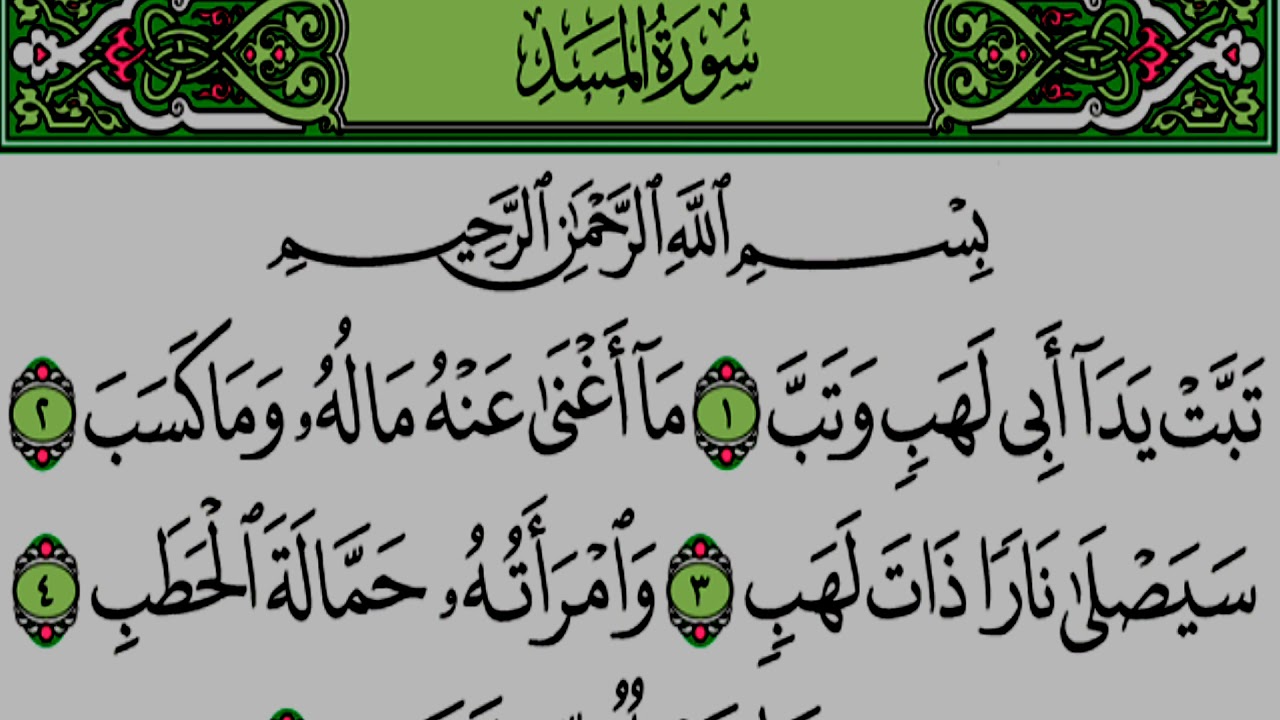 سُورَةُ المَسَدِ
بِسْمِ ٱللَّهِ ٱلرَّحْمَٰنِ ٱلرَّحِيمِ
تَبَّتْ يَدَآ أَبِى لَهَبٍ وَتَبَّ ١ مَآ أَغْنَىٰ عَنْهُ مَالُهُۥ وَمَا كَسَبَ ٢
سَيَصْلَىٰ نَارًا ذَاتَ لَهَبٍ ٣ وَٱمْرَأَتُهُۥ حَمَّالَةَ ٱلْحَطَبِ ٤